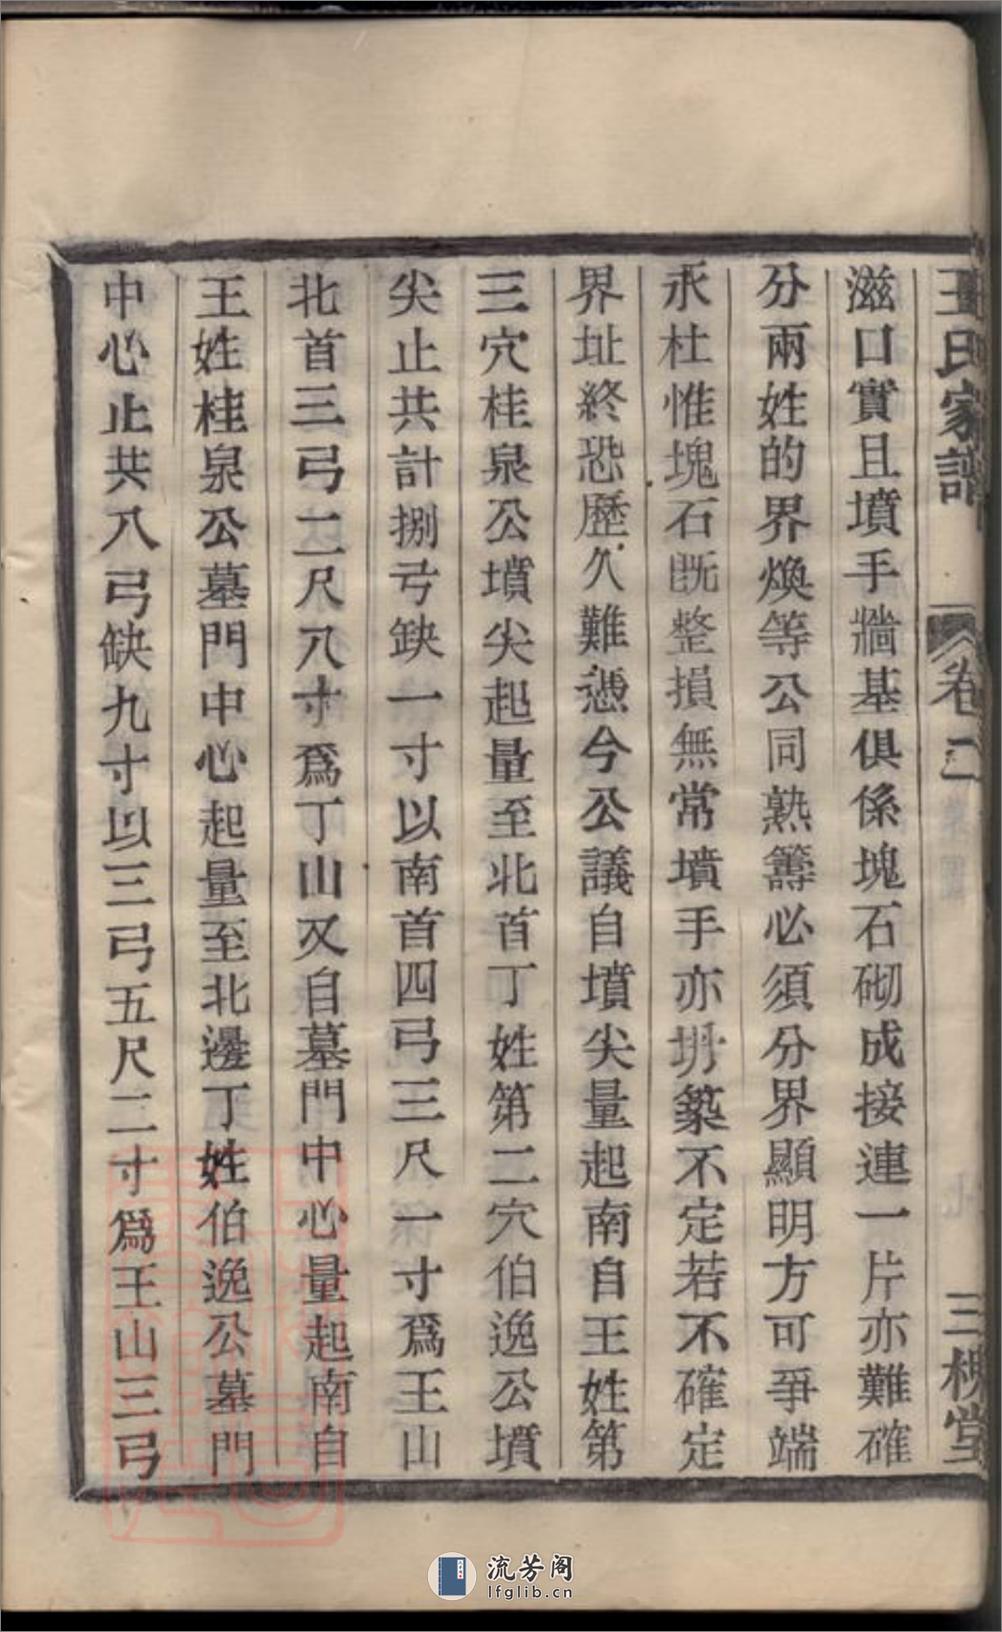 王氏家譜 卷二 三槐堂
滋口實且墳手牆基俱係塊石砌成接連一片亦難確
分兩姓的界煥等公同熟籌必須分界顯明方可爭端
永杜惟塊石既整損無常墳手亦坍築不定若不確定
界址終恐歷久難憑今公議自墳尖量起南自王姓第
三穴桂泉公墳尖起量至北首丁姓第二穴伯逸公墳
尖止共計捌弓缺一寸以南首四弓三尺一寸爲王山
北首三弓二尺八寸爲丁山又自墓門中心量起南自
王姓桂泉公墓門中心起量至北邊丁姓伯逸公墓門
中心止共八弓缺九寸以三弓五尺二寸爲王山三弓
流芳阁
lfglib.cn